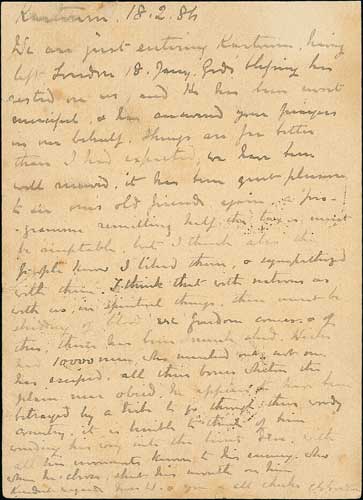 Kartoum. 18.2.84
We are just entering Kartoum, having
left London 18 Jany. God's blessing has
rested on us, and He has been most
merciful, & has answered your prayers
in our behalf. Things are far better
than I had expected, we have been
well received, it has been great pleasure
to see one's old friends again, a pro-
gramme remitting half the taxes must
be acceptable, but I think also the
people knew I liked them, & sympathized
with them. I think that with nations as
with us, in spiritual things, there must be
shedding of blood ere freedom comes, & of
this, there has been much shed. Hicks
had 10000 men, who marched out, not one
has escaped. all their bones whiten the
plain near Obeid. He appears to have been
betrayed by a tribe to go through this woody
country, it is terrible to think of him
wending his way into this lions' Den, with
all his movements known to his enemy, who
when he chose, shut his mouth on him
Kindest regards